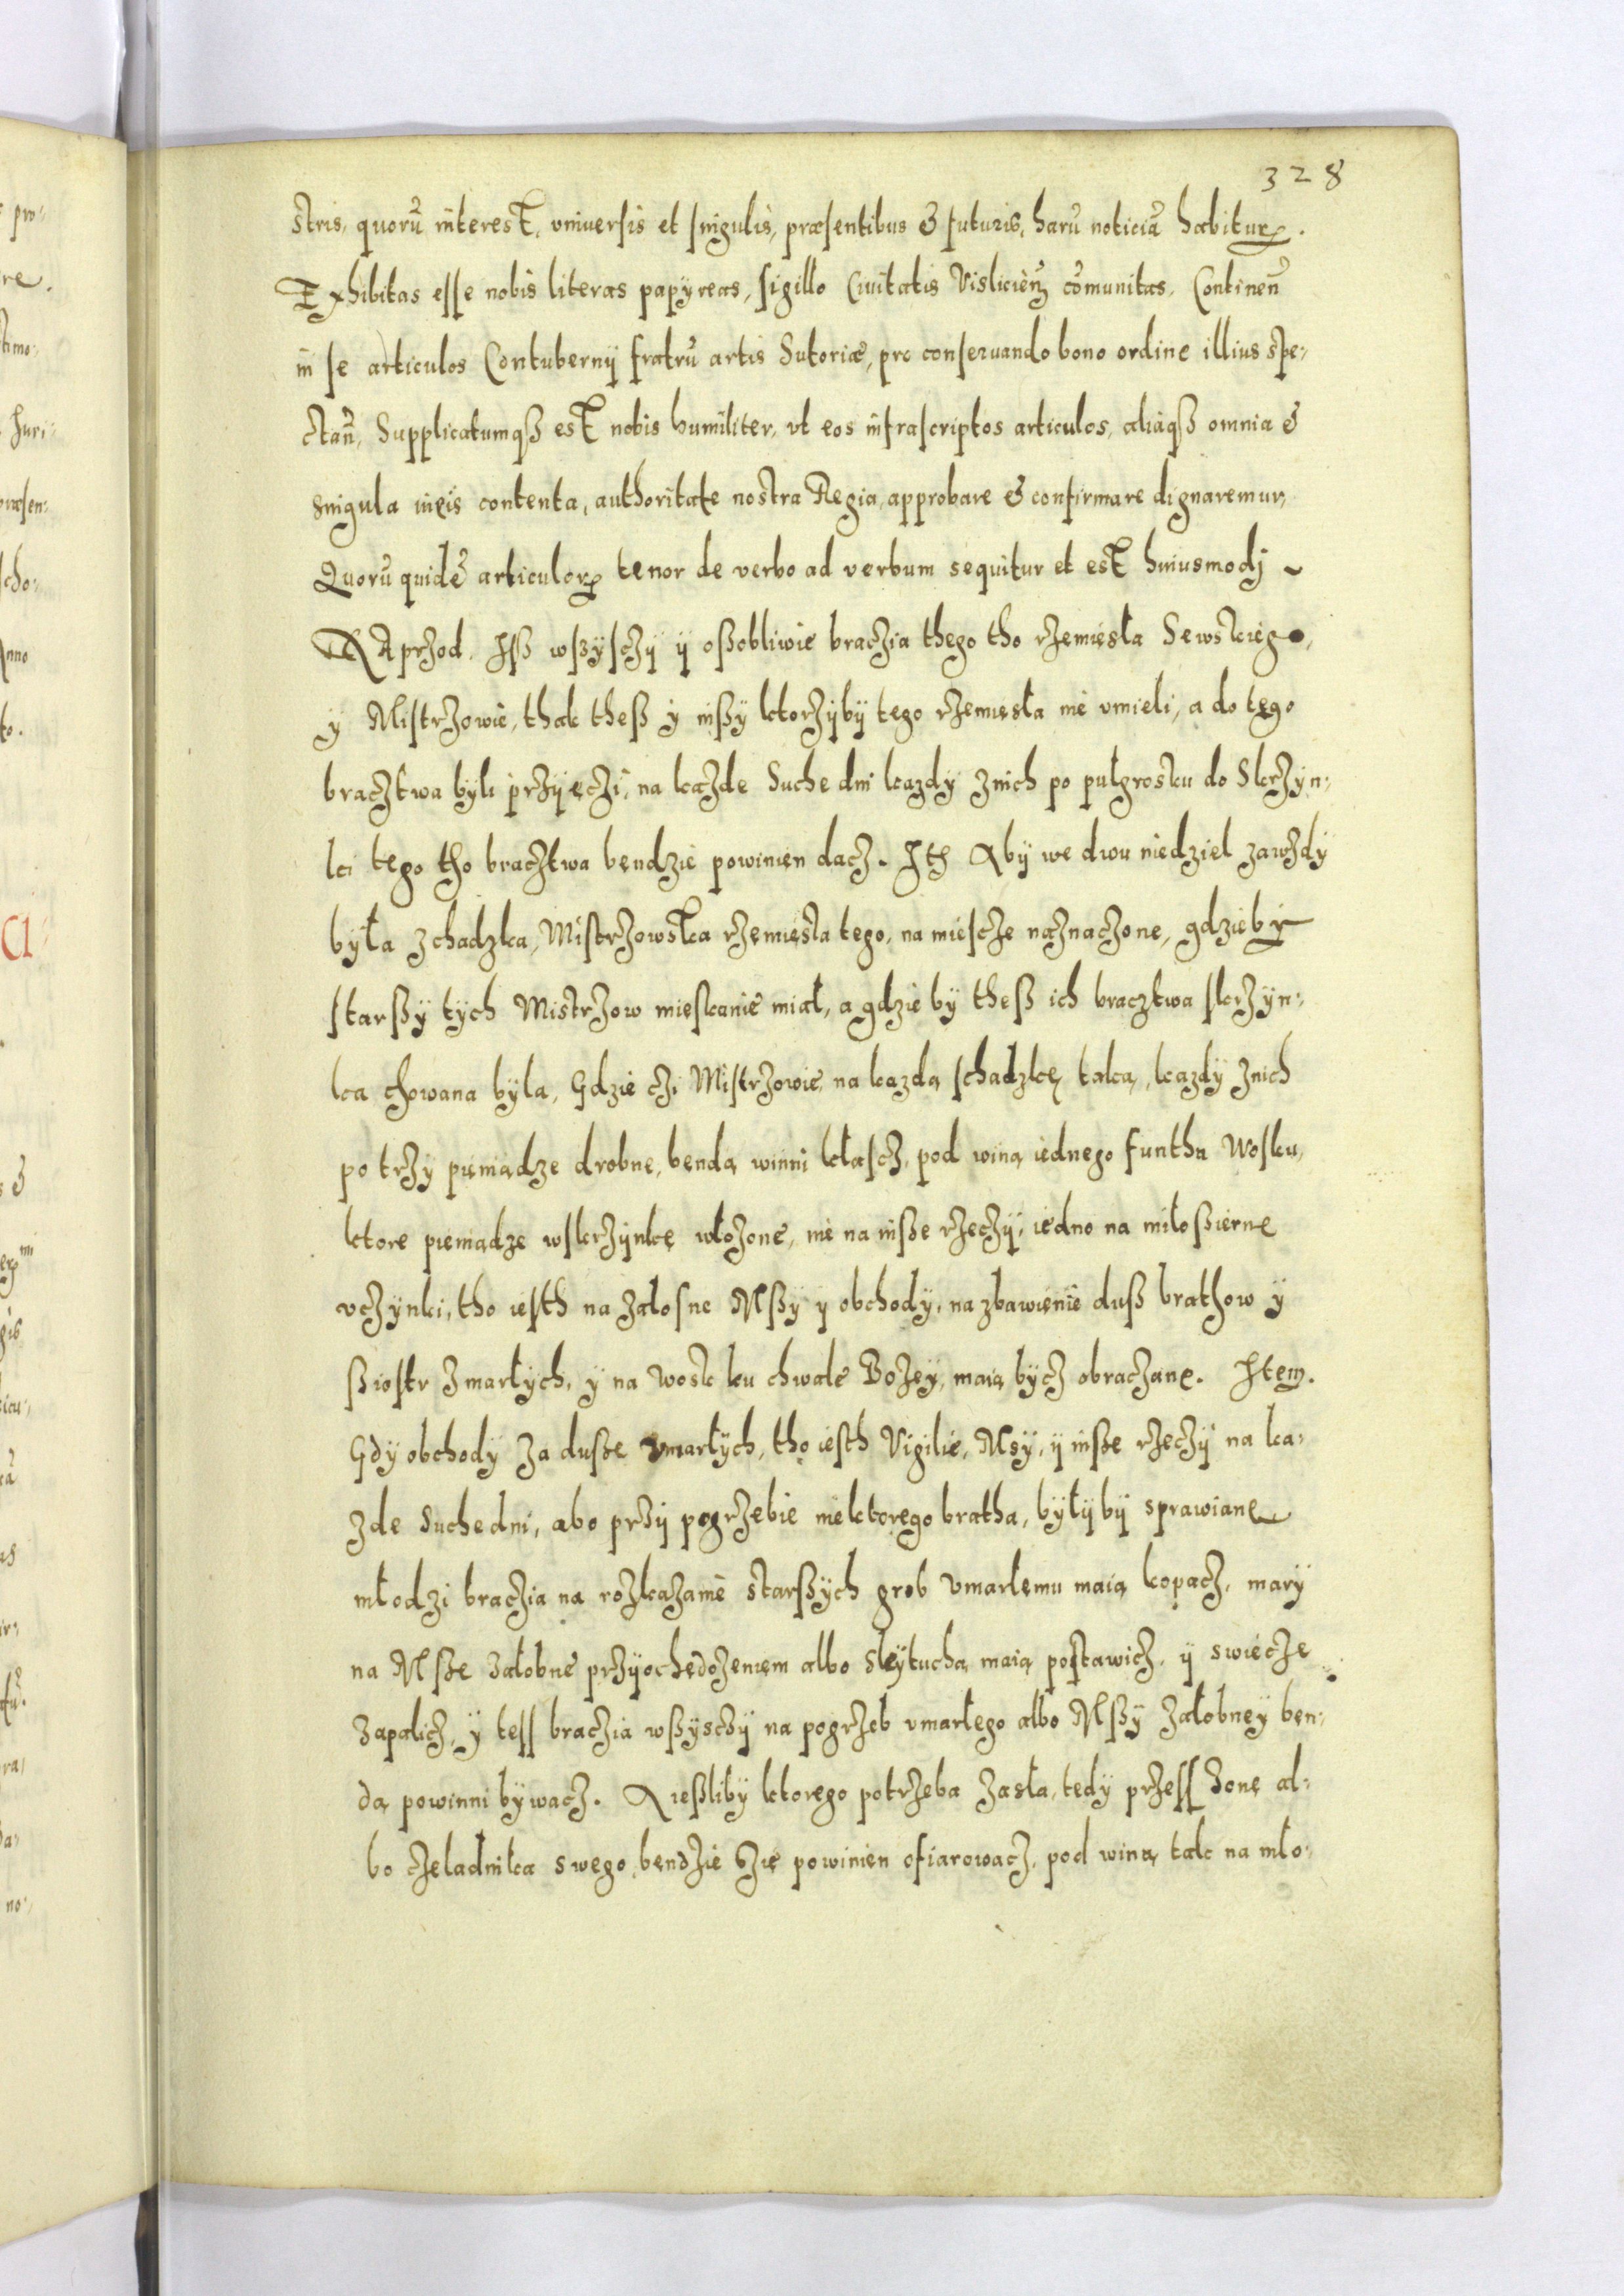 328
stris, quorũ interest, vniuersis et singulis, præsentibus & futuris, harũ noticiã habituꝝ.
Exhibitas esse nobis literas papyreas, sigillo Ciuitatis Visliciẽn cõmunitas, Continẽn
in se articulos Contubernij fratrũ artis Sutoriæ, pro conseruando bono ordine illius spe:
ctañ, Supplicatumqß est nobis humiliter, vt eos infrascriptos articulos, aliaqß omnia &
singula ineis contenta, authoritate nostra Regia, approbare & confirmare dignaremur,
Quorũ quidẽ articuloꝝ tenor de verbo ad verbum sequitur et est huiusmodj ~
NAprzod. Iß wßysczÿ ÿ oßobliwie braczia thego tho rzemiesła Sewskiego,
ÿ Mistrzowie, thak theß ÿ inßÿ ktorzÿbÿ tego rzemiesła nie vmieli, a do tego
bracztwa byli przÿięczi, na każde Suche dni kazdÿ znich po pułgrosku do Skrzÿn:
ki tego tho bracztwa bendzie powinien dacz. Ith Abÿ we dwu niedziel zawżdÿ
bÿła zchadzka, Mistrzowska rzemięsła tego, na miescze naznaczone, gdziebÿ
starßÿ tÿch Mistrzow mięskanie miał, a gdzie bÿ theß ich bracztwa skrzÿn:
ka chowana bÿla, Gdzie czi Mistrzowie na kazdą schadzkę taką, kazdÿ znich
po trzÿ pieniądze drobne, bendą winni kłascz, pod winą iednego funthu Wosku,
ktore pieniądze wskrzÿnkę włożone, nie na inße rzeczÿ, iedno na miłoßierne
vczÿnki, tho iesth na żałosne Mßÿ ÿ obchodÿ, na zbawienie duß brathow ÿ
ßiostr zmarłÿch, ÿ na wosk ku chwale Bożeÿ, maią bÿcz obraczane. Item.
Gdÿ obchodÿ za duße vmarłÿch, tho iesth Vigilie, Msÿ, ÿ inße rzeczÿ na ka:
żde Suchedni, abo przÿ pogrzebie niektorego bratha, bÿłÿ bÿ sprawiane
młodzi braczia na rozkazanie starßÿch grob vmarłemu maią kopacz, marÿ
na Mße żałobne przÿochędożeniem albo Skÿtuchą maią postawicz, ÿ swiecze
zapalicz, ÿ tess braczia wßÿsczÿ na pogrzeb vmarłego albo Mßÿ żałobneÿ ben:
dą powinni bÿwacz. A ießlibÿ ktorego potrzeba zasła, tedÿ przess żonę al:
bo czeladnika swego, bendzie się powinien ofiarowacz, pod winą tak na mło: